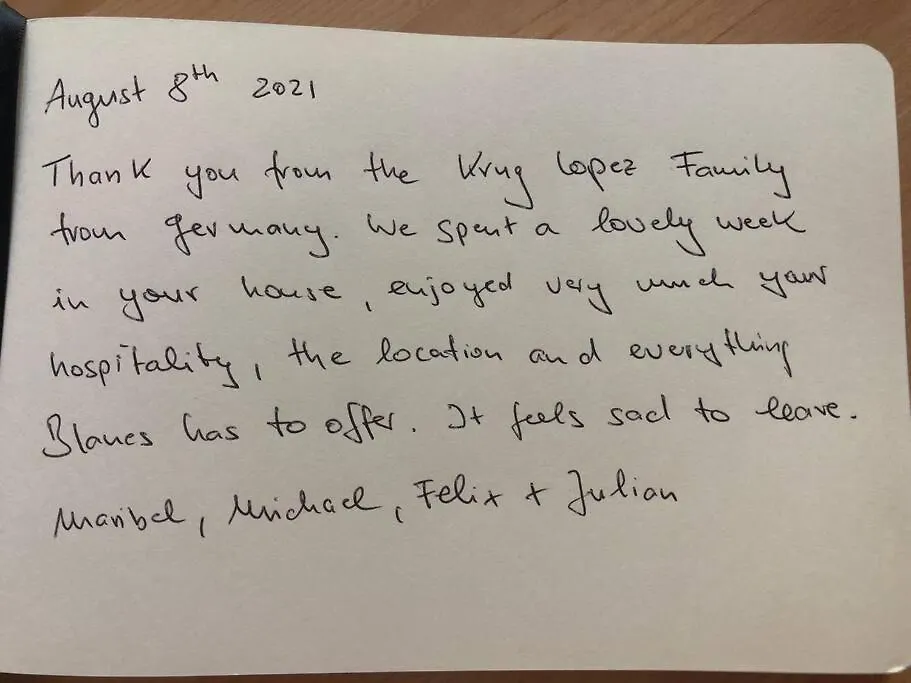 August 8th 2021
Thank you from the Krug Lopez Family
from Germany. We spent a lovely week
in your house, enjoyed very much your
hospitality, the location and everything
Blanes has to offer. It feels sad to leave.
Maribel, Michael, Felix + Julian